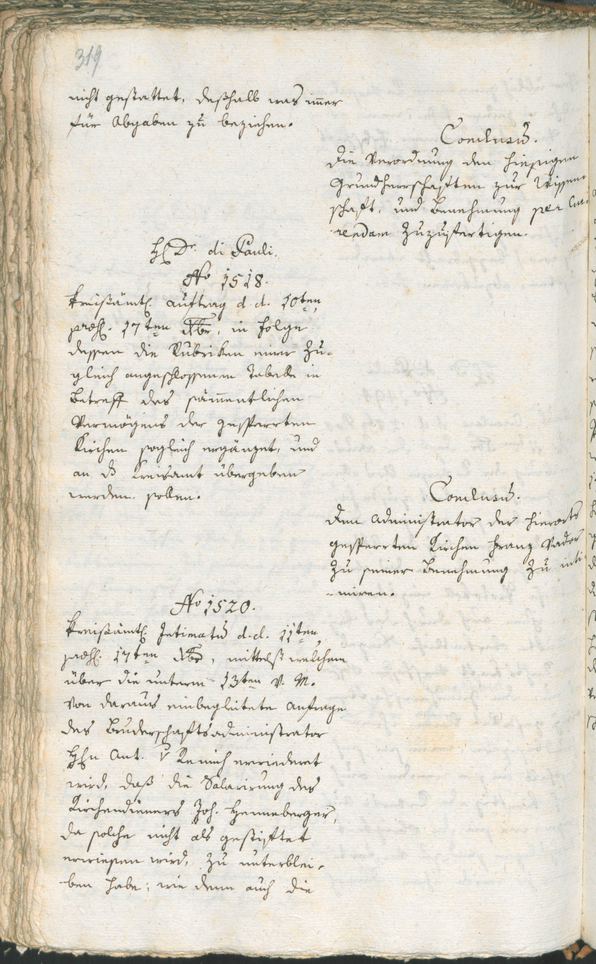 319
nicht gestattet, deßhalb was im̅er
für Abgaben zu beziehen.
Conclusū.
die Verordnung den hiesigen
Grundherrschaften zur Wissen-
schaft, und Benehmung per Cur-
rendam zuzufertigen.
H. Dr. di Pauli.
No 1518.
Kreisämtl. Auftrag d. d. 10ten,
praes. 17ten Xbr, in Folge
dessen die Rubriken einer zu-
gleich angeschlossenen Tabelle in
Betreff des sämmentlichen
Vermögens der gesperrten
Kirchen sogleich ergänzet, und
an ds Kreisamt übergeben
werden sollen.
Conclusū.
dem Administrator der hierorts
gesperrten Kirchen Franz
zu seiner Benehmung zu inti-
-miren.
No 1520.
Kreisämtl. Intimatū d. d. 11ten,
praes. 17ten Xbr, mittelst welchem
über die unterm 13ten v. M.
von daraus einbegleitete Anfrage
des Bruderschaftsadministrator
H̅n Ant. v Remich erwiederet
wird, daß die Salarirung des
Kirchendieners Joh. Henneberger,
da solche nicht als gestiftet
erwiesen wird, zu unterblei-
ben habe; wie denn auch die